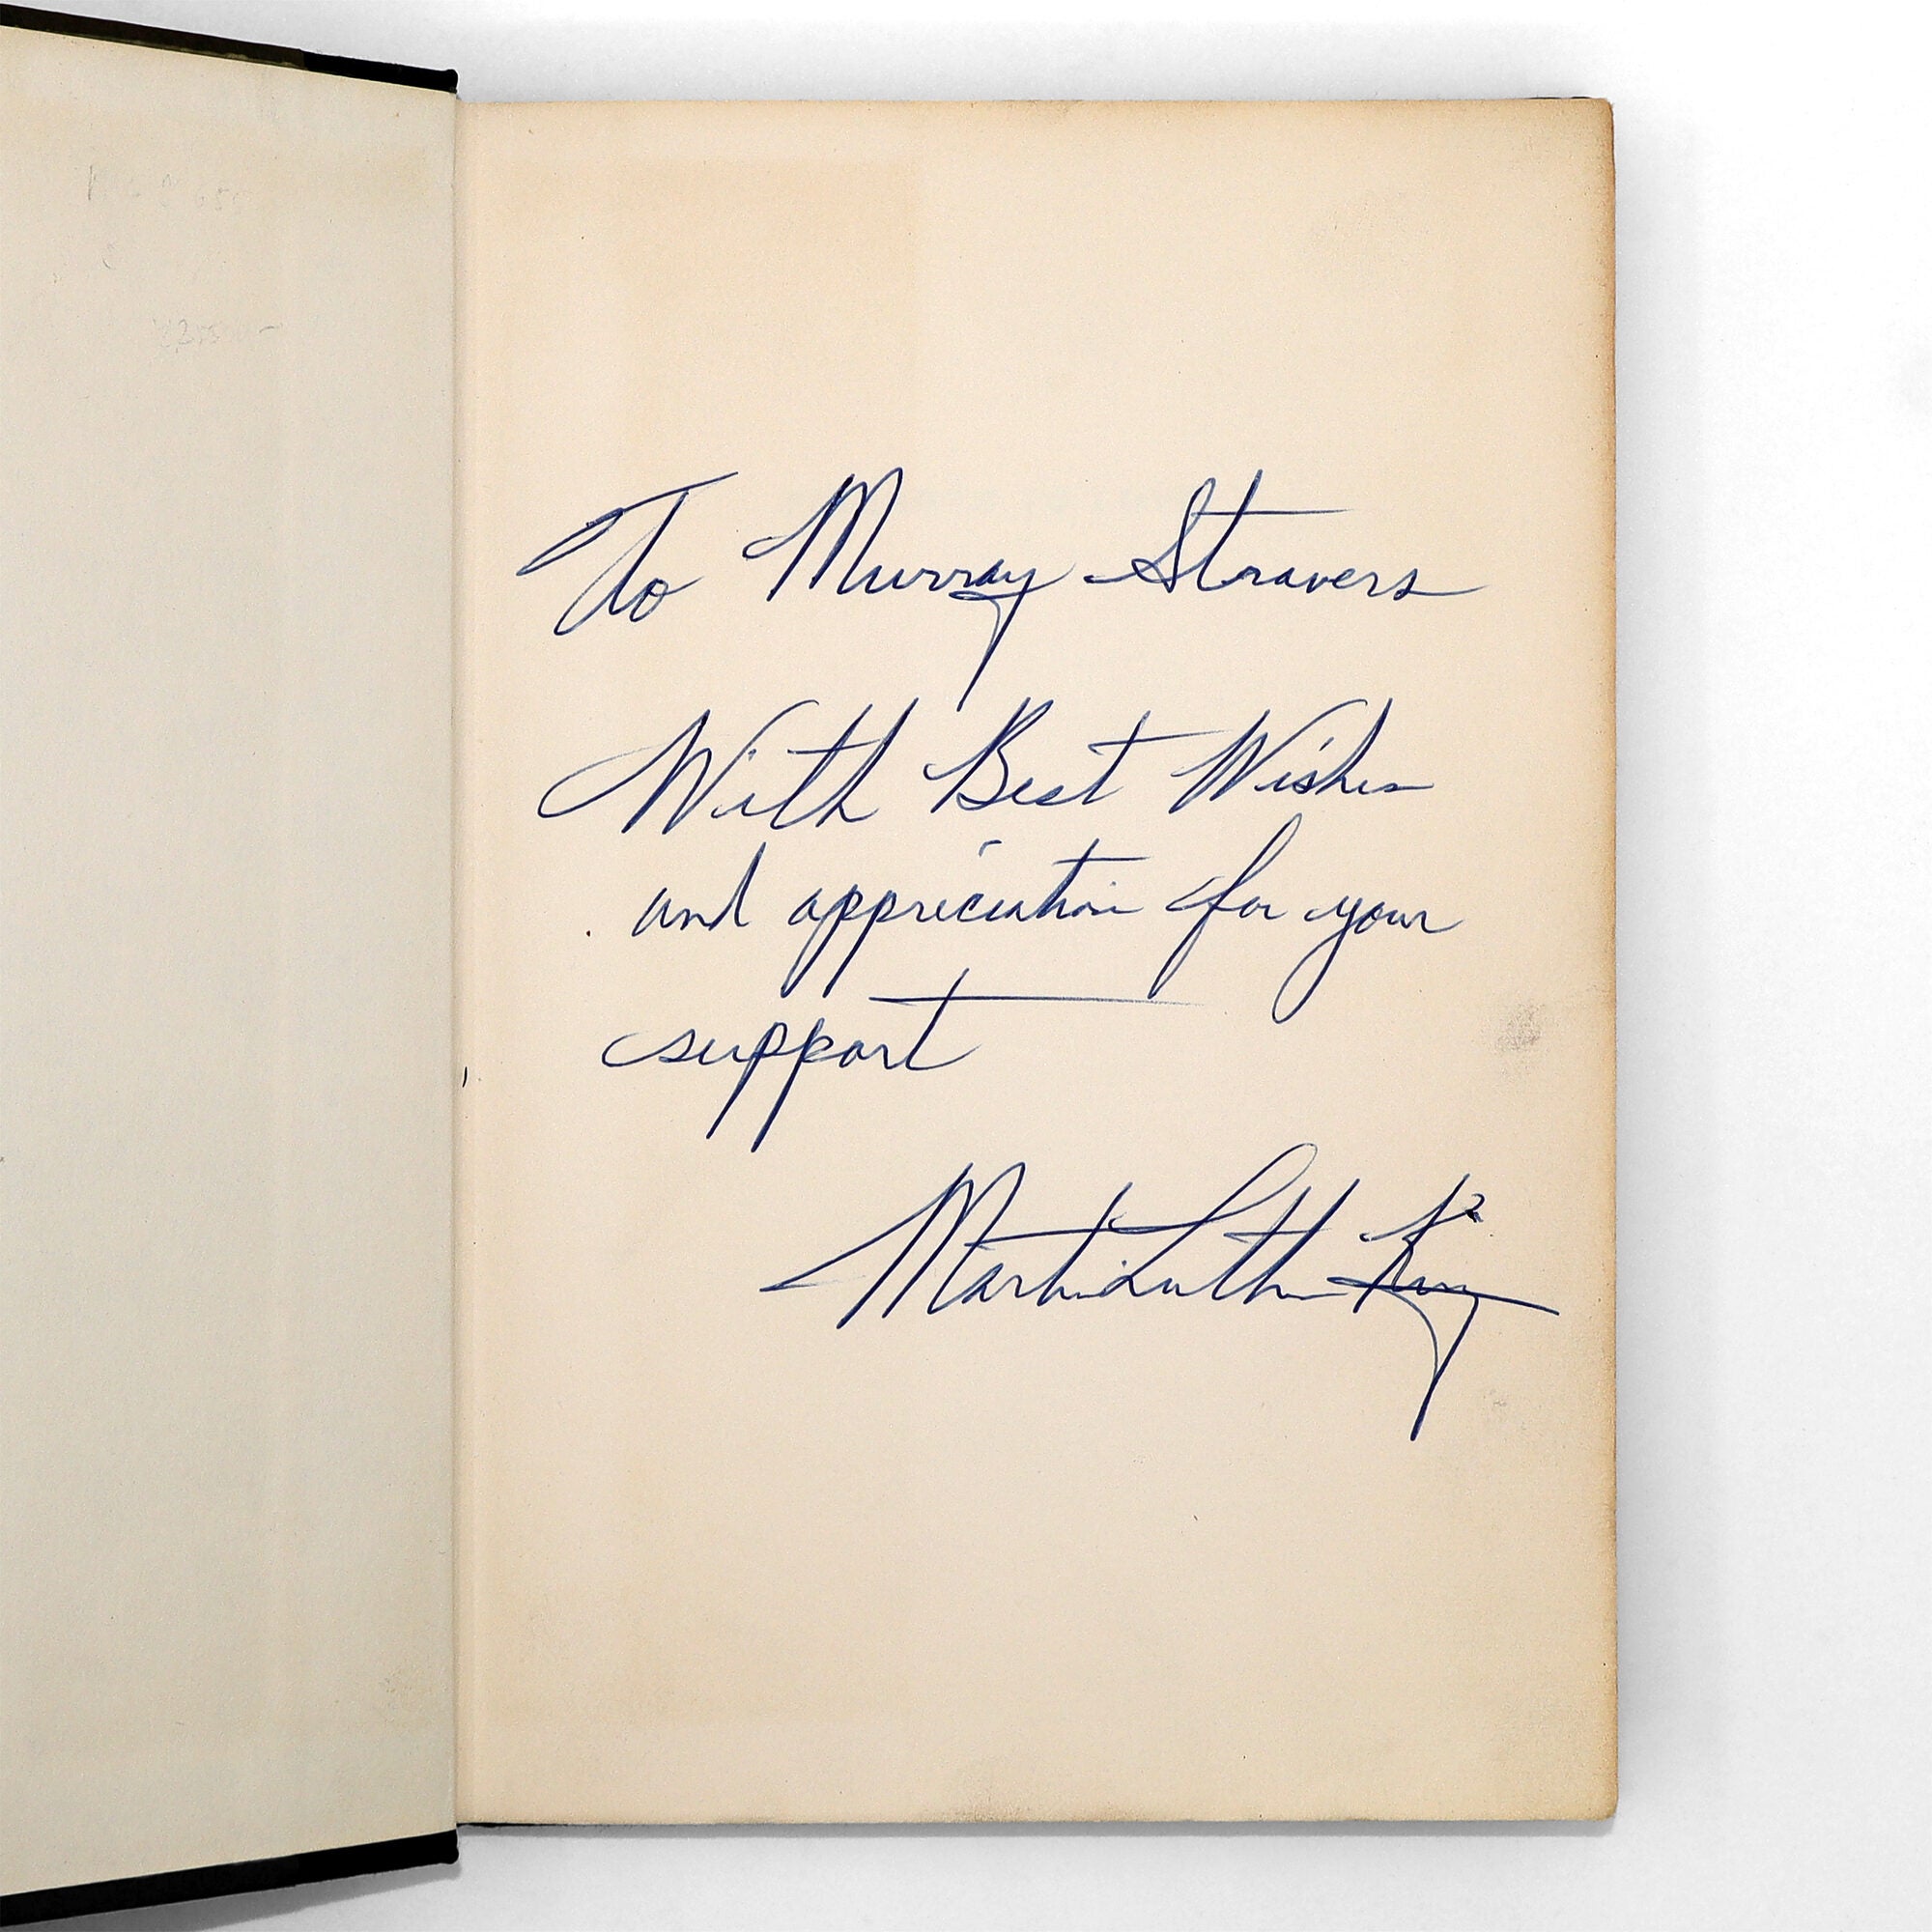 To Murray Stravers
With Best Wishes
and appreciation for your
support
Martin Luther King Jr